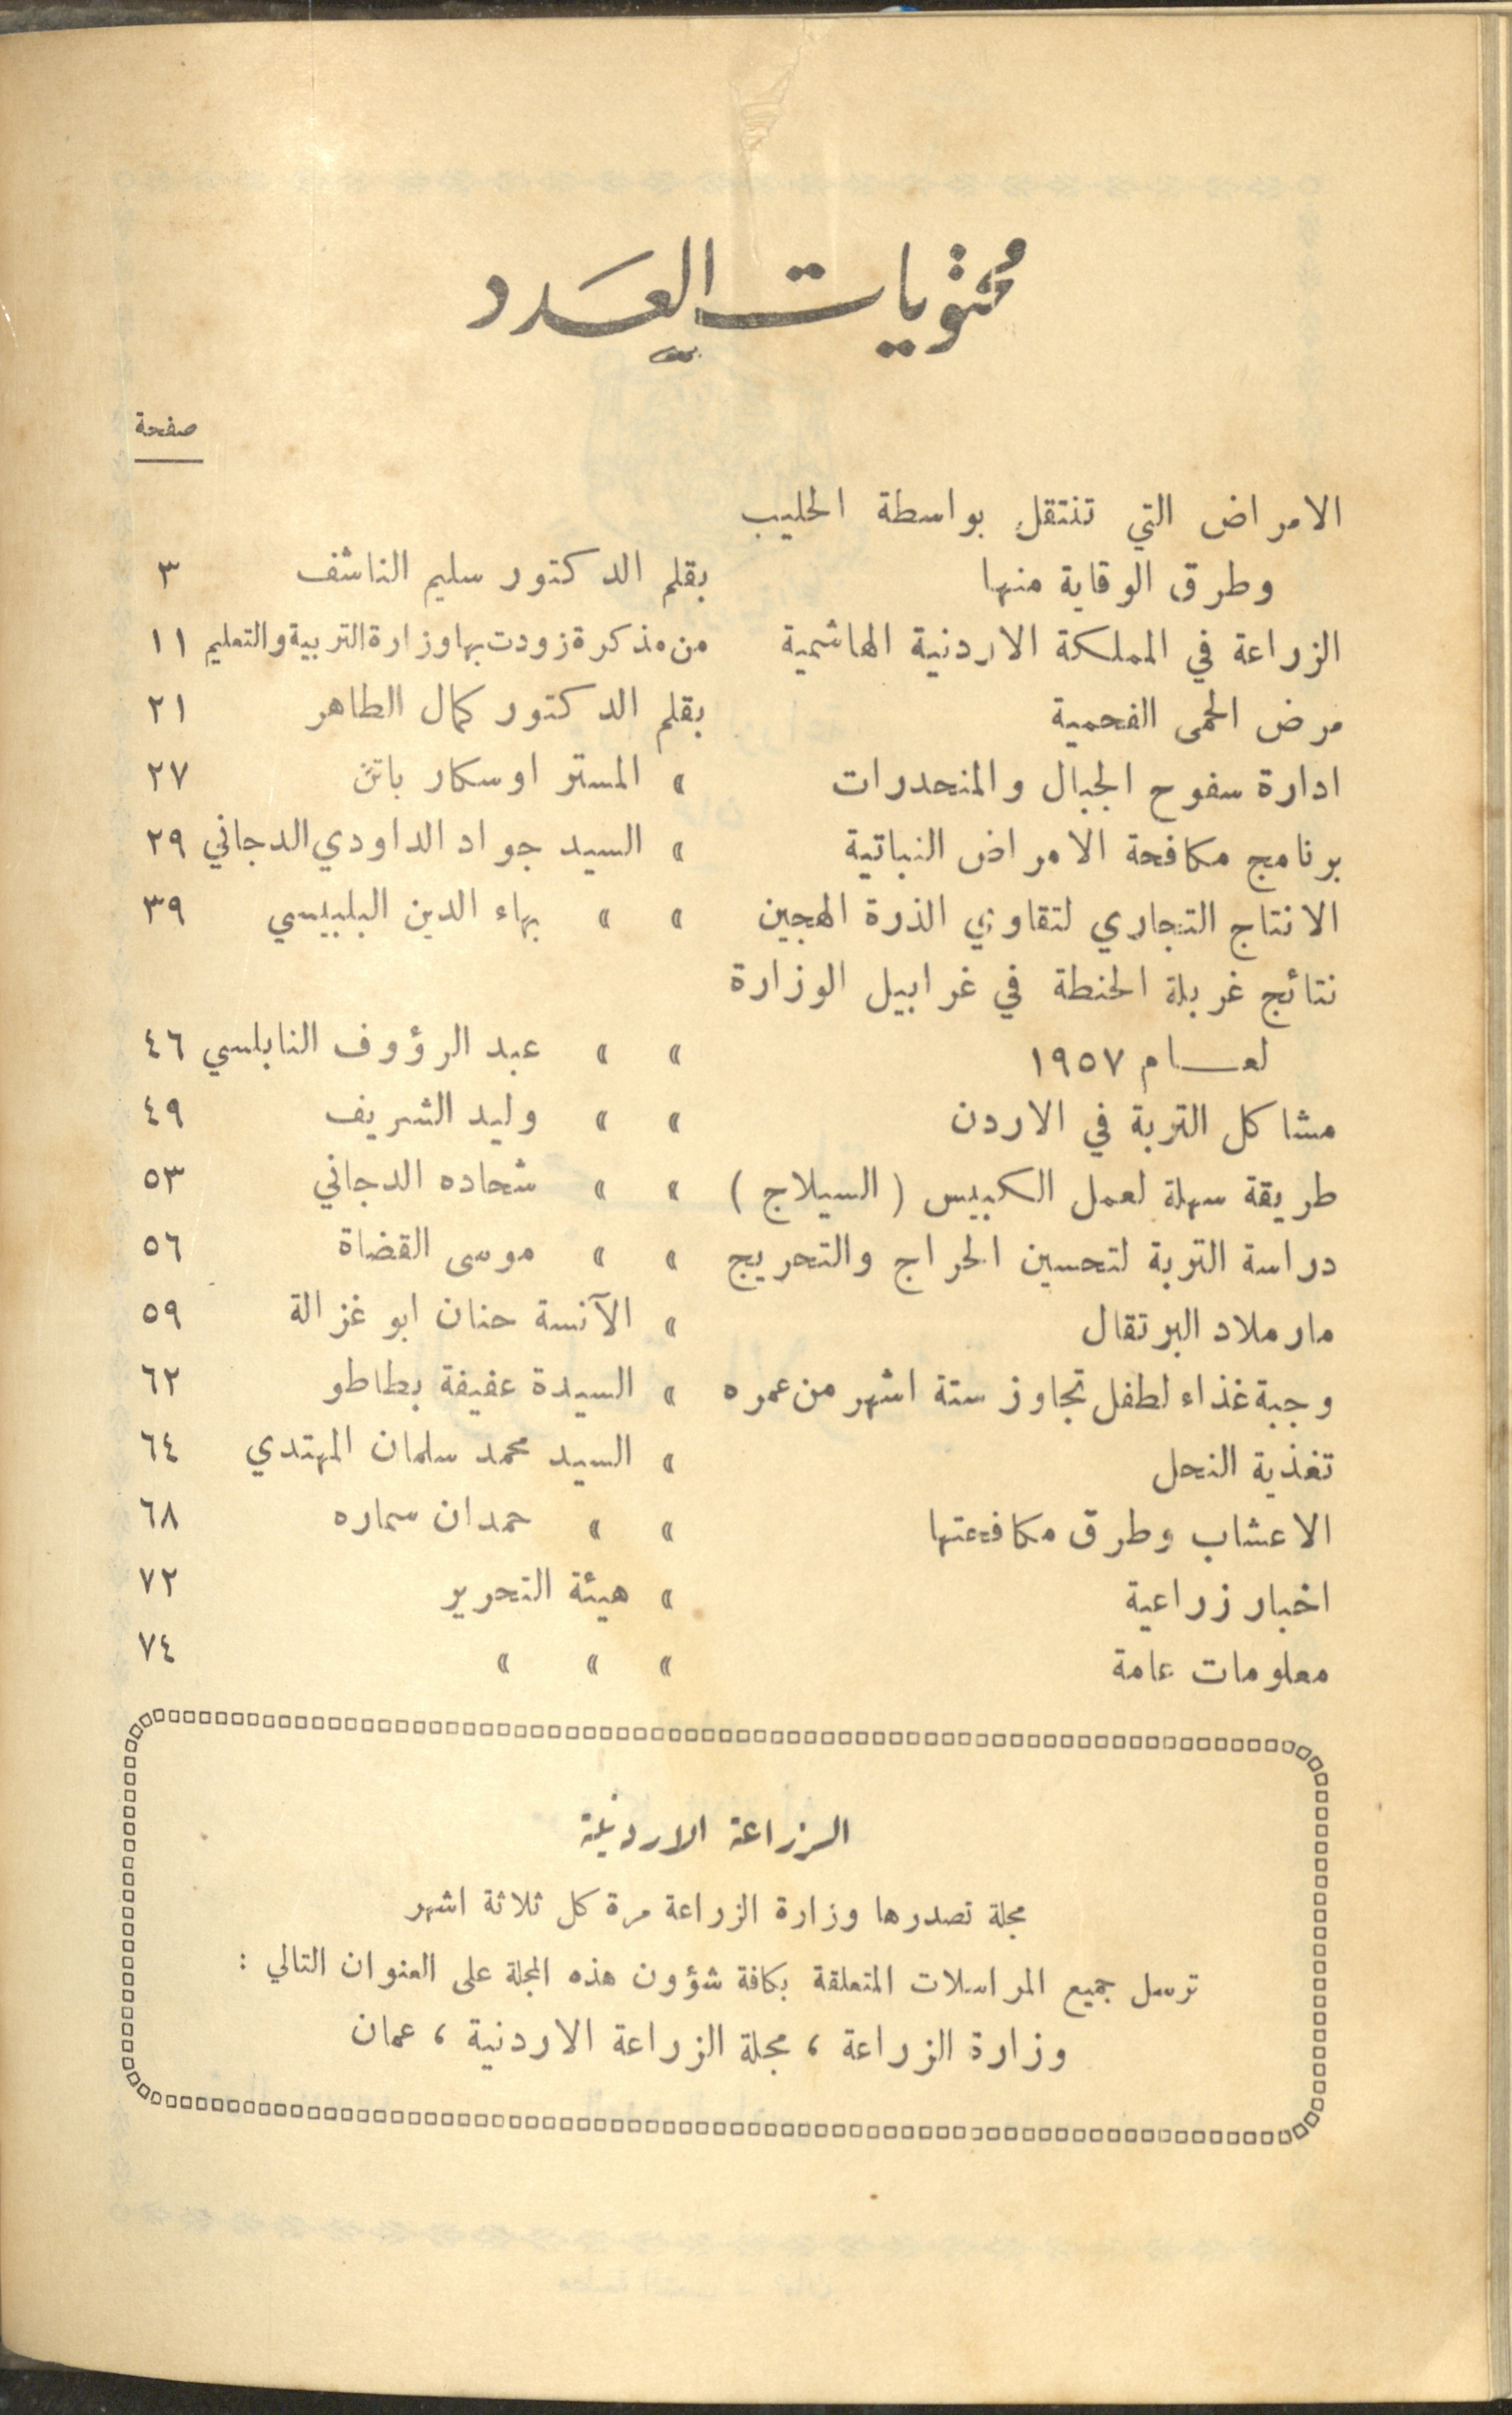 محتويات العدد
صفحة
الامراض التي تنتقل بواسطة الحليب
وطرق الوقاية منها بقلم الدكتور سليم الناشف ٣
الزراعة في المملكة الاردنية الهاشمية من مذكرة زودت بها وزارة التربية والتعليم ١١
مرض الحمى الفحمية بقلم الدكتور كمال الطاهر ٢١
ادارة سفوح الجبال والمنحدرات » المستر اوسكار باتن ٢٧
برنامج مكافحة الامراض النباتية » السيد جواد الداودي الدجاني ٢٩
الانتاج التجاري لتقاوي الذرة الهجين » » بهاء الدين البلبيسي ٣٩
نتائج غربلة الحنطة في غرابيل الوزارة
لعـــام ١٩٥٧ » » عبد الرؤوف النابلسي ٤٦
مشاكل التربة في الاردن » » وليد الشريف ٤٩
طريقة سهلة لعمل الكبيس ( السيلاج ) » » شحاده الدجاني ٥٣
دراسة التربة لتحسين الحراج والتحريج » » موسى القضاة ٥٦
مارملاد البرتقال » الآنسة حنان ابو غزالة ٥٩
وجبة غذاء لطفل تجاوز ستة اشهر من عمره » السيدة عفيفة بطاطو ٦٢
تغذية النحل » السيد محمد سلمان المهتدي ٦٤
الاعشاب وطرق مكافحتها » » حمدان سماره ٦٨
اخبار زراعية » هيئة التحرير ٧٢
معلومات عامة » » » ٧٤
الزراعة الاردنية
مجلة تصدرها وزارة الزراعة مرة كل ثلاثة اشهر
ترسل جميع المراسلات المتعلقة بكافة شؤون هذه المجلة على العنوان التالي :
وزارة الزراعة ، مجلة الزراعة الاردنية ، عمان